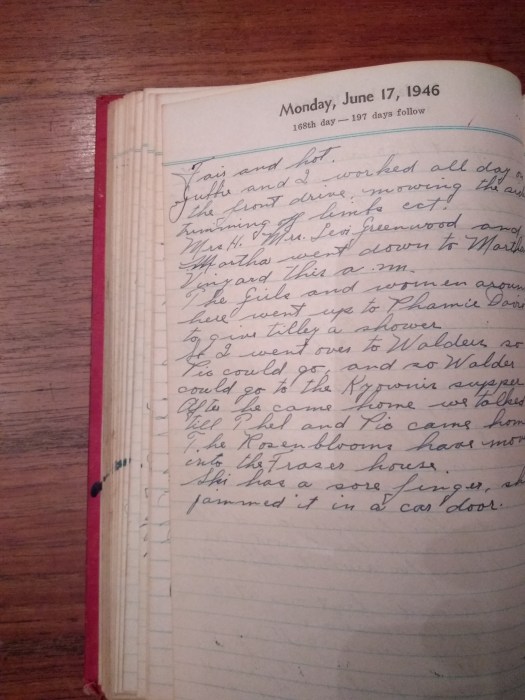 Monday, June 17, 1946
168th day — 197 days follow
Fair and hot.
and I worked all day
the front drive, mowing the
trimming off limbs ect.
Mrs H. Mrs. Levi Greenwood and
Martha went down to Martha
Vinyard this a.m.
The girls and women aroun
here went up to Phamie
to give tilley a shower
So I went over to Walders so
Pio could go, and so Walder
could go to the Kyownis supper
After he came home we talked
till Phel and Pio came hom
The Rosenblooms have mov
into the Fraser house.
Ski has a sore finger, sh
jammed it in a car door.